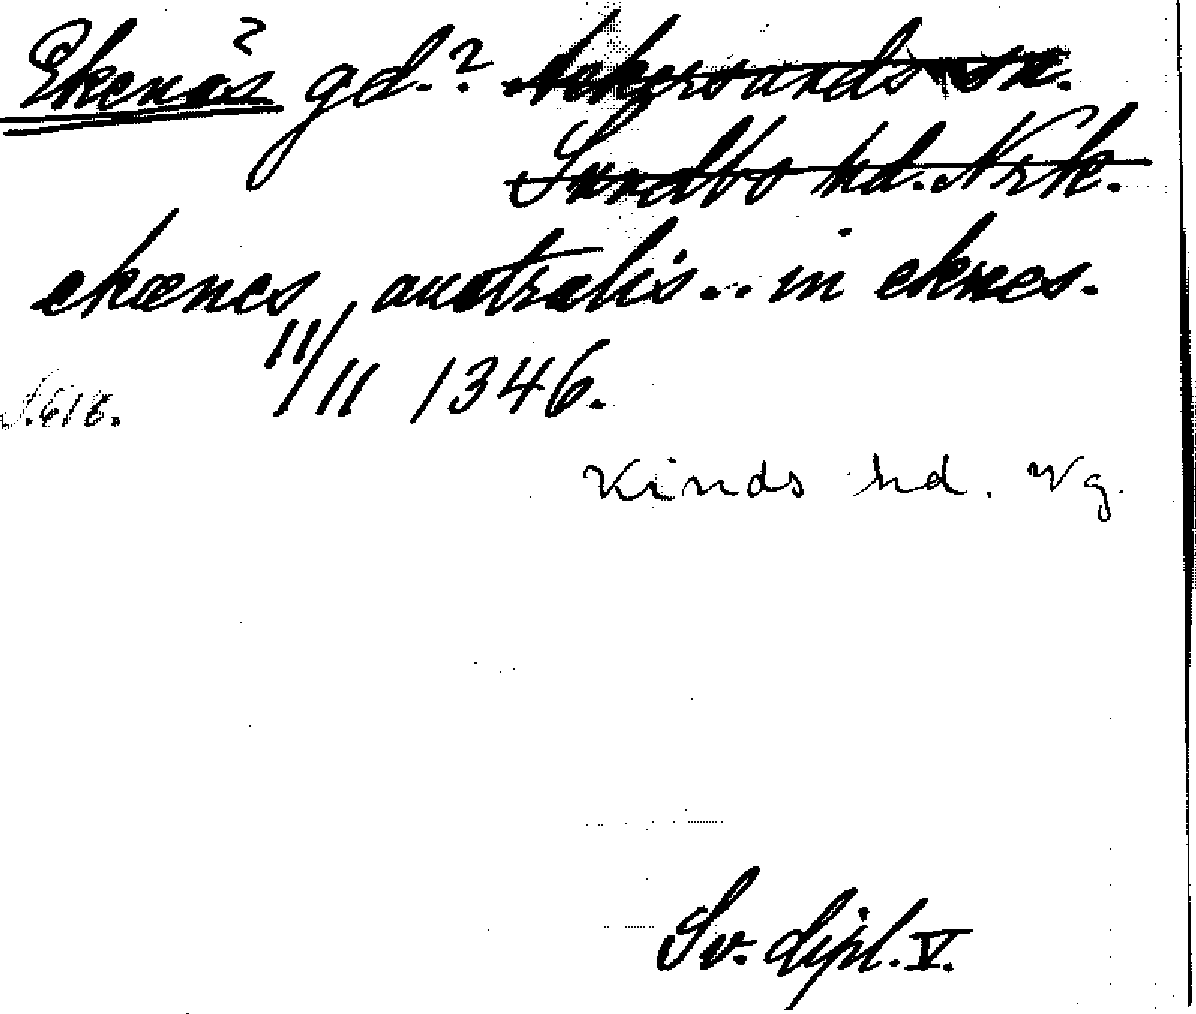 Ekenäs? gd.? Askersunds sn.
Sundbo hd. Nrk.
ekænes australis .. in eknes.
11/11 1346.
S. 618.
Kinds hd. Vg.
Sv. dipl. V.